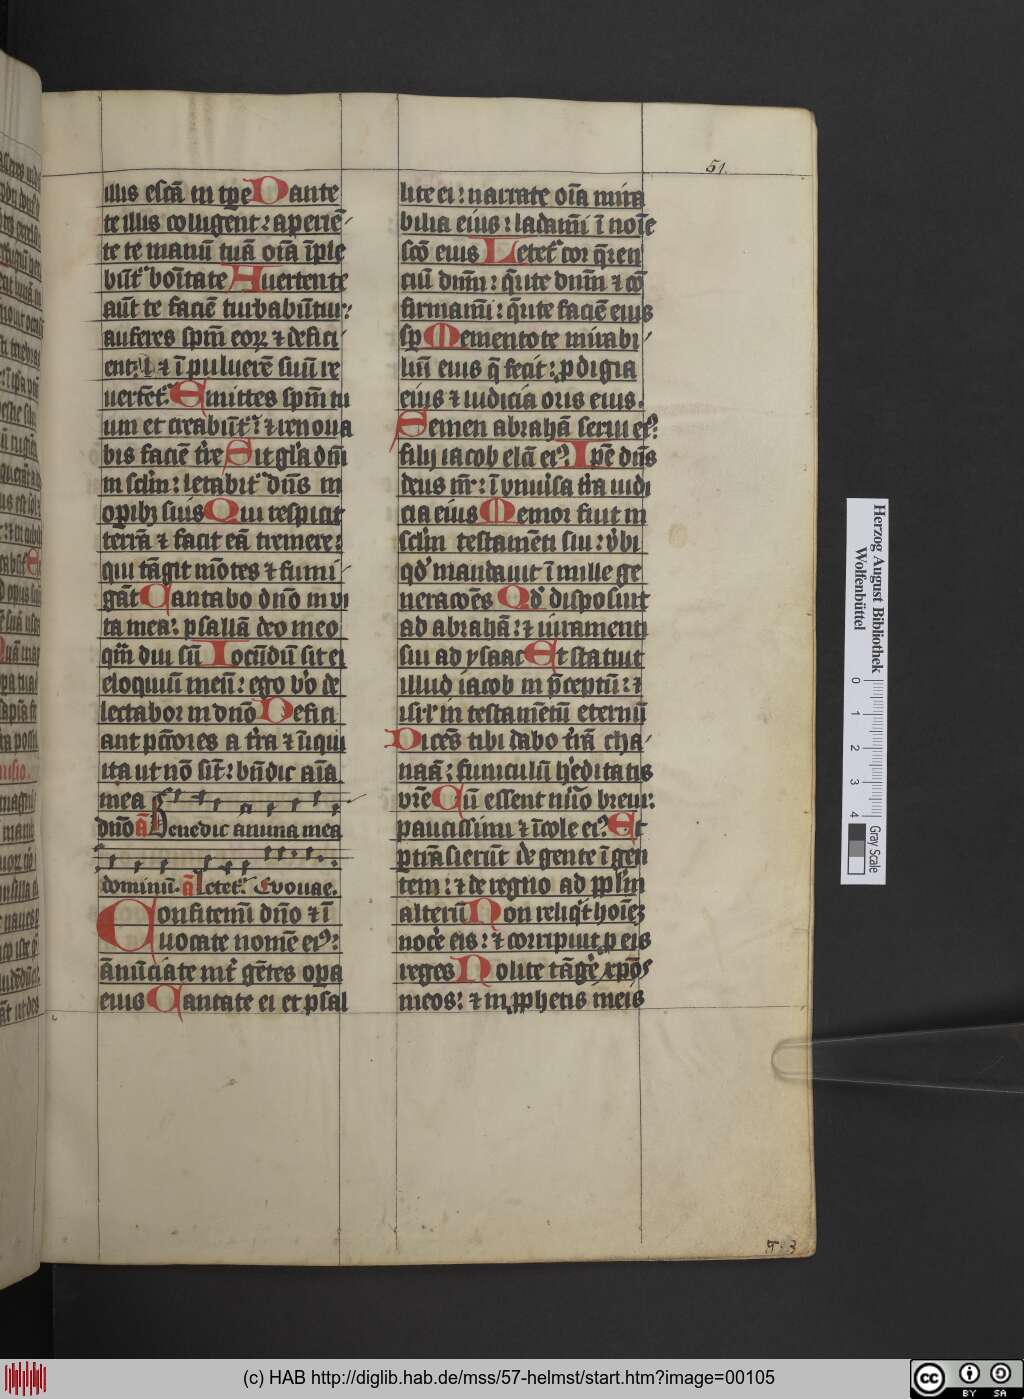 51
illis escā in tp̄e Dante
te illis colligent: aperiē
te te manū tuā oīa īple
būt᷑ bonītate Auertente
aūt te faciē turbabūtur:
auferes spm̄ eoꝝ ⁊ defici
ent: ⁊ ī puluerē suū re
uertēt᷑ Emittes spm̄ tu
um et creabūt᷑: ⁊ renoua
bis faciē tr̄e Sit gl'a dn̄i
in sclm̄: letabit᷑ dn̄s in
opibꝫ suis Qui respicit
terrā ⁊ facit eā tremere:
qui tāgit mōtes ⁊ fumi
gāt Cantabo dn̄o in vi
ta mea: psallā deo meo
qm̄ diu sū Iocūdū sit ei
eloquiū meū: ego v'o de
lectabor in dn̄o Defici
ant pctōres a tr̄a ⁊ iniqui
ita ut nō sīt: bn̄dic aīa
mea
dn̄o ā Benedic anima mea
dominū. ā Letet᷑. Evouae.
Confitemī dn̄o ⁊ ī
uocate nomē eiꝰ:
ānūciate int᷑ gētes opa
eius Cantate ei et psal
lite ei: narrate oīa mira
bilia eius: laudamī ī noīe
scō eius Letet᷑ cor q̄ren
ciū dnm̄: q̄rite dnm̄ ⁊ cō
firmamī: q̄rite faciē eius
sp Mementote mirabi
liū eius q̄ fecit: ꝓdigia
eius ⁊ iudicia oris eius.
Semen abrahā serui eiꝰ:
filij iacob elcī eiꝰ. Ipē dn̄s
deus nr̄: ī vniuīsa tr̄a iudi
cia eius Memor fuit in
sclm̄ testamēti sui: v'bi
qd' mandauit ī mille ge
neracōes Qd' disposuit
ad abrahā: ⁊ iuramenti
sui ad ysaac Et statuit
illud iacob in p̄ceptū: ⁊
isr'l in testamētū eternū
Dicēs tibi dabo tr̄ā cha
naā: funiculū h'editatis
vr̄e Cū essent nūo breui:
paucissimi ⁊ īcole eiꝰ: Et
ꝑtrāsierūt de gente ī gen
tem: ⁊ de regno ad ppl'm
alterū Non reliq't hoīeꝫ
nocē eis: ⁊ corripuit ꝓ eis
reges Nolite tāgē xpōs
meos: ⁊ in ꝓphetis meis
Herzog August Bibliothek
Wolfenbüttel
0 1 2 3 4 Gray Scale
(c) HAB http://diglib.hab.de/mss/57-helmst/start.htm?image=00105
cc BY SA